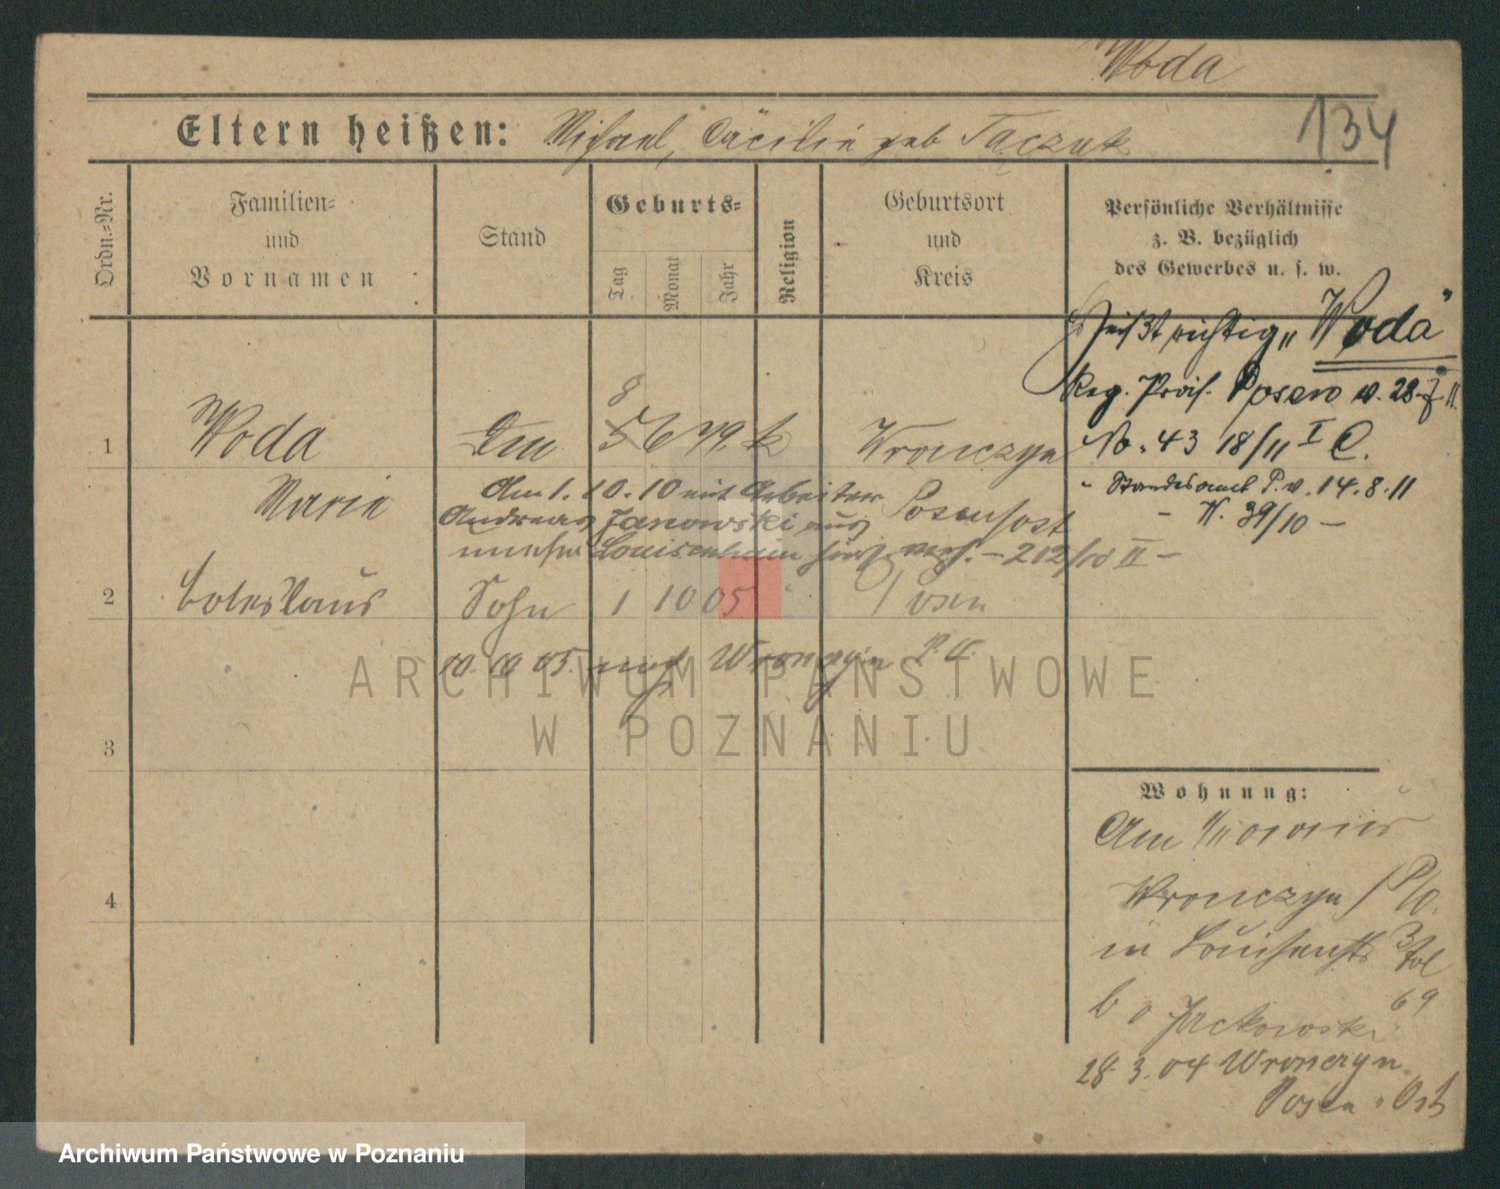 Woda
Eltern heißen: Michael, Cäcilie geb Taczak
134
Ordn.=Nr.
Familien=
und
Vornamen
Stand
Geburts=
Tag
Monat
Jahr
Religion
Geburtsort
und
Kreis
Persönliche Verhältnisse
z. B. bezüglich
des Gewerbes u. s. w.
heißt richtig „Woda"
Reg. Präs. Posen v. 28.7.11.
No. 43 18/11 I C.
Standesamt P. v. 14.8.11
- K. 39/10 -
1 Woda 8 6 79 k Wronczyn
Marie
Posen Ost
Am 1. 10. 10 mit Arbeiter
Andreas Janowski aus
Louisenhain verh. - 212/10 II -
2 Boleslaus Sohn 1 10 05 Posen
10. 10 05. nach Wronczyn P. O.
3
4
Wohnung:
Am
Wronczyn / P/O.
in Louisenstr 3
b
69
28. 3. 04 Wronczyn
Posen Ost
ARCHIWUM PAŃSTWOWE
W POZNANIU
Archiwum Państwowe w Poznaniu